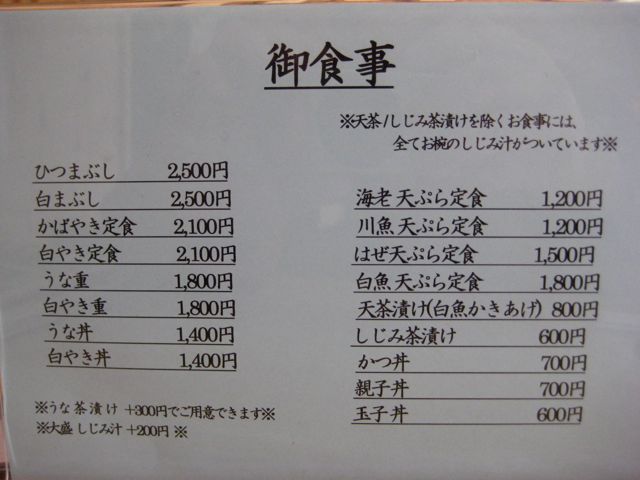 御食事
※天茶/しじみ茶漬けを除くお食事には、
全てお椀のしじみ汁がついています※
ひつまぶし 2,500円
白まぶし 2,500円
かばやき定食 2,100円
白やき定食 2,100円
うな重 1,800円
白やき重 1,800円
うな丼 1,400円
白やき丼 1,400円
※うな茶漬け +300円でご用意できます※
※大盛しじみ汁 +200円 ※
海老天ぷら定食 1,200円
川魚天ぷら定食 1,200円
はぜ天ぷら定食 1,500円
白魚天ぷら定食 1,800円
天茶漬け(白魚かきあげ) 800円
しじみ茶漬け 600円
かつ丼 700円
親子丼 700円
玉子丼 600円